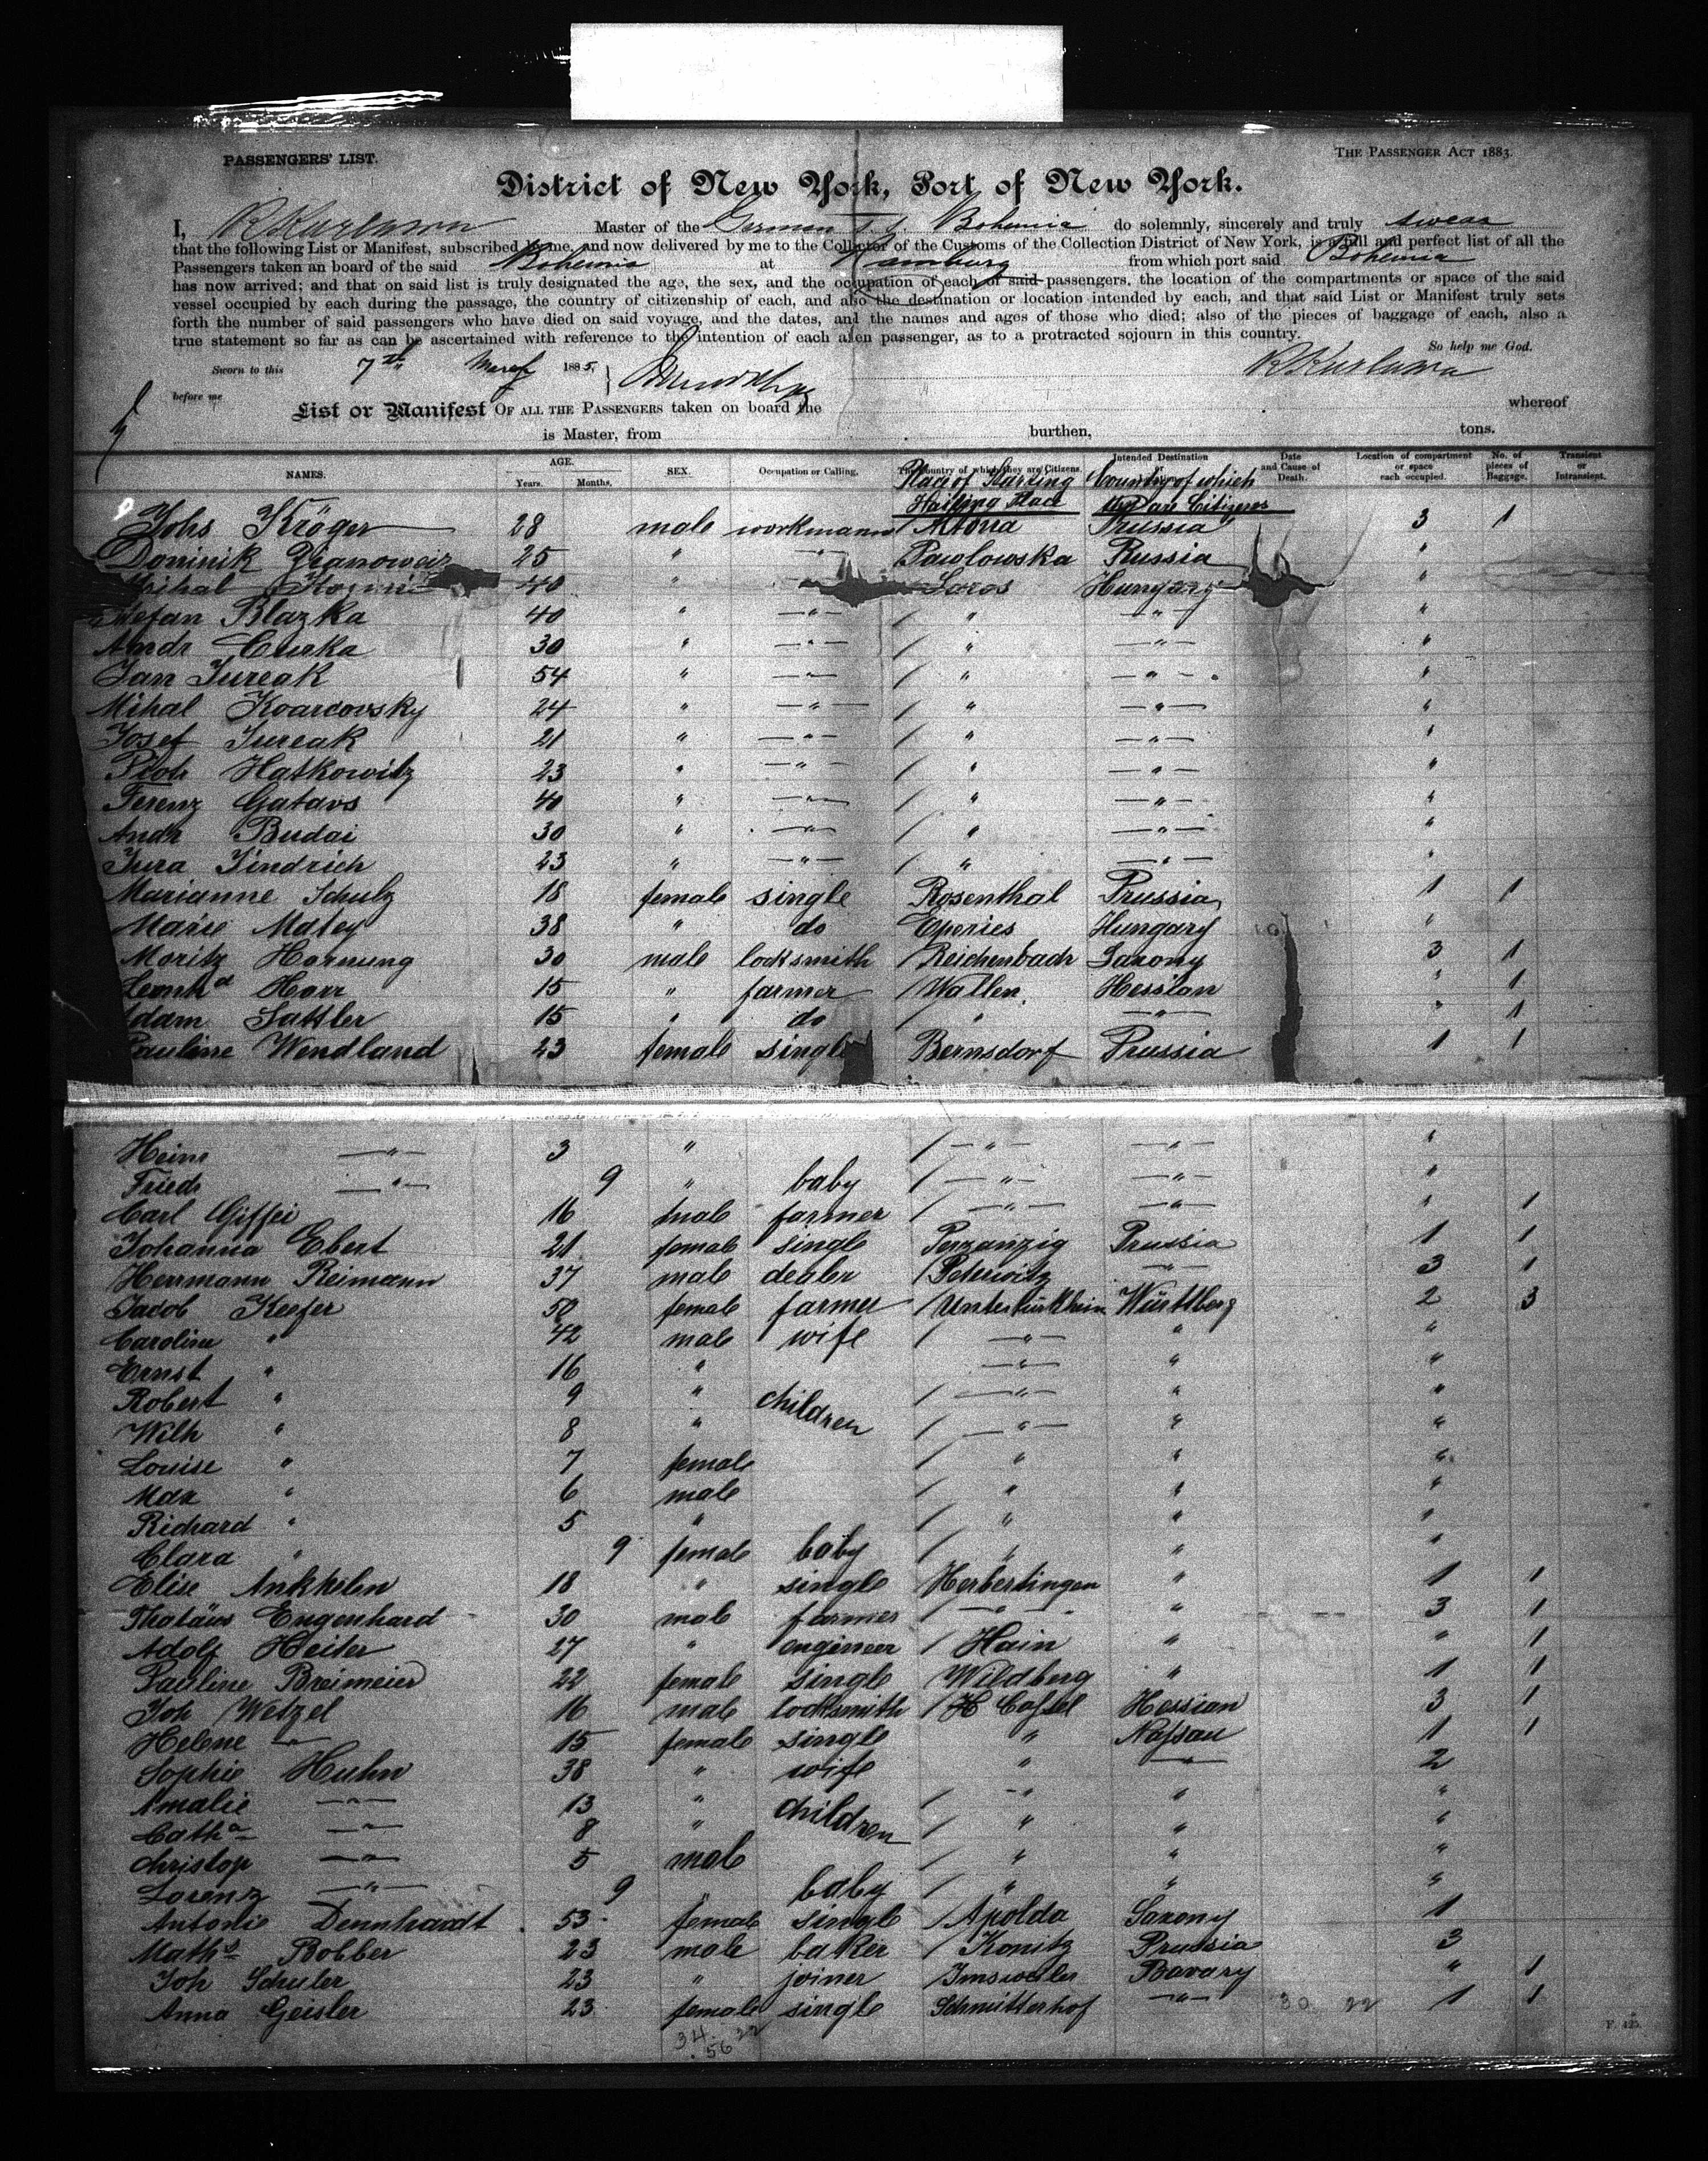 PASSENGERS' LIST. THE PASSENGER ACT 1883.
District of New York, Port of New York.
I, Master of the German S. S. Bohemia do solemnly, sincerely and truly swear
that the following List or Manifest, subscribed by me, and now delivered by me to the Collector of the Customs of the Collection District of New York, is a full and perfect list of all the
Passengers taken on board of the said Bohemia at Hamburg from which port said Bohemia
has now arrived; and that on said list is truly designated the age, the sex, and the occupation of each of said passengers, the location of the compartments or space of the said
vessel occupied by each during the passage, the country of citizenship of each, and also the destination or location intended by each, and that said List or Manifest truly sets
forth the number of said passengers who have died on said voyage, and the dates, and the names and ages of those who died; also of the pieces of baggage of each, also a
true statement so far as can be ascertained with reference to the intention of each alien passenger, as to a protracted sojourn in this country.
So help me God.
Sworn to this 7th 1885,
before me
List or Manifest OF ALL THE PASSENGERS taken on board the whereof
is Master, from burthen, tons.
NAMES. AGE. Years. Months. SEX. Occupation or Calling. The Country of which they are Citizens. Intended Destination Date and Cause of Death. Location of compartment or space each occupied. No. of pieces of Baggage. Transient or Intransient.
Place of Starting Country of which
Hailing Place they are Citizens
Johs Kröger 28 male workmann / Altona Prussia 3 1
Dominik 25 " —"— Pawlowska Russia "
Mihal 40 " Saros Hungary "
Stefan Blazka 40 " —"— / " —"— "
Andr Curka 30 " —"— / " —"— "
Jan Jureak 54 " —"— / " —"— "
Mihal Koarcovsky 24 " —"— / " —"— "
Josef Jureak 21 " —"— / " —"— "
Piotr Hatkowitz 23 " —"— / " —"— "
Ferenz Gatavs 40 " —"— / " —"— "
Andr Budai 30 " —"— / " —"— "
Jura Jindrich 23 " —"— / " —"— "
Marianne Schulz 18 female single Rosenthal Prussia 1 1
Marie Matey 38 " do Eperies Hungary "
Moritz Hornung 30 male locksmith / Reichenbach Saxony 3 1
Leonhd Horr 15 " farmer / Wallen Hessian " 1
Adam Sattler 15 " do / " —"— " 1
Pauline Wendland 23 female single Bernsdorf Prussia 1 1
Heinr —"— 3 " / —"— —"— "
Friedr —"— 9 " baby / —"— —"— "
Carl Giffei 16 male farmer / —"— —"— " 1
Johanna Ebert 21 female single Perzanzig Prussia 1 1
Herrmann Reimann 37 male dealer / Peterwitz —"— 3 1
Jacob Keefer 50 female farmer / Unterturkheim Württberg 2 3
Caroline " 42 male wife / —"— " "
Ernst " 16 " —"— " "
Robert " 9 " children / —"— " "
Wilh " 8 " / —"— " "
Louise " 7 female / " " "
Max " 6 male / " " "
Richard " 5 " / " " "
Clara " 9 female baby / " " "
Elise Ankkeln 18 " single Herbertingen " 1 1
Thatäus Engenhard 30 male farmer / —"— " 3 1
Adolf Heiter 27 " engineer / Hain " " 1
Pauline Breimeier 22 female single Wildberg " 1 1
Joh Wetzel 16 male locksmith / H Cassel Hessian 3 1
Helene —"— 15 female single " Nassau 1 1
Sophie Huhn 38 " wife " —"— 2
Amalie —"— 13 " children / —"— " "
Catha —"— 8 " / " " "
Christop —"— 5 male / " " "
Lorenz —"— 9 " baby / " " "
Antonie Dennhardt 53 female single / Apolda Saxony 1
Maths Bobber 23 male baker / Konitz Prussia 3
Joh Schuler 23 " joiner / Imsweiler Bavary " 1
Anna Geisler 23 female single Schmitterhof —"— 30 22 1 1
34 22
56
F. 425.